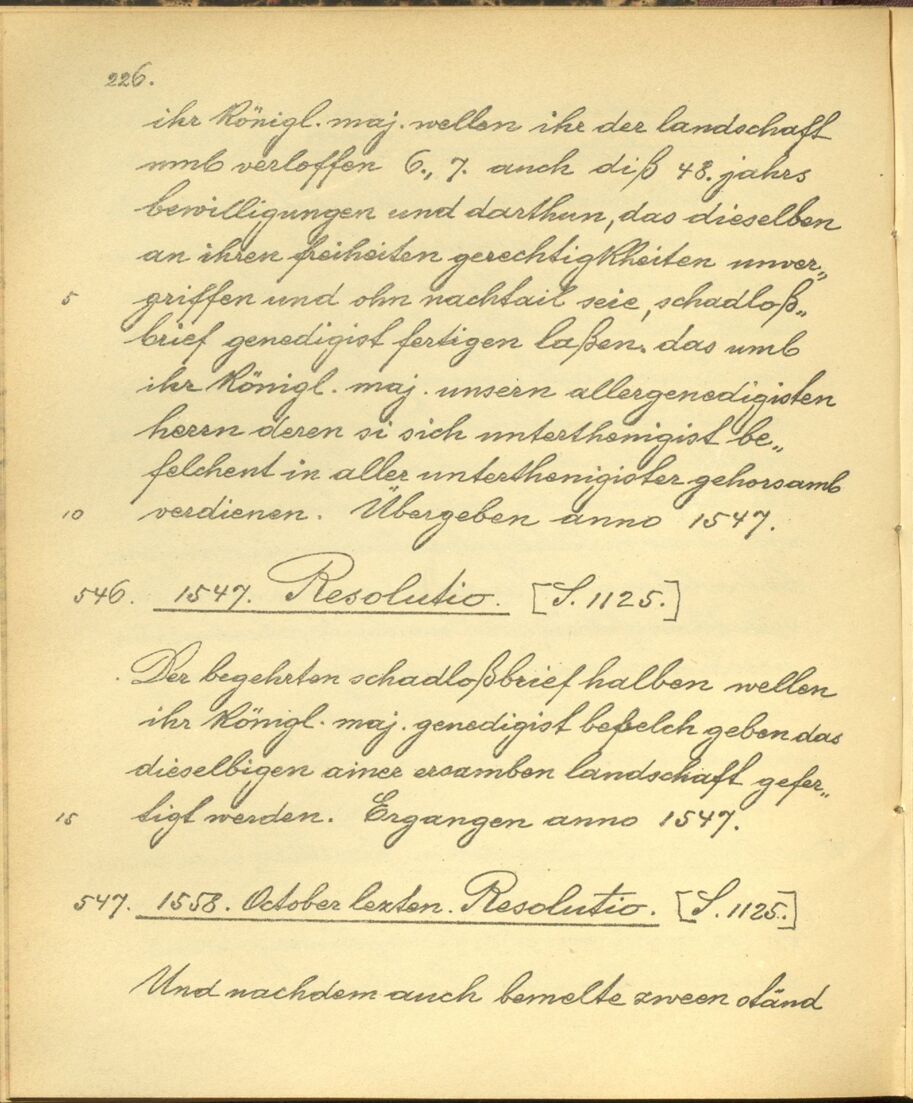 226.
ihr Königl. maj. wellen ihr der landschaft
umb verloffen 6., 7. auch diß 48. jahrs
bewilligungen und darthun, das dieselben
an ihren freiheiten gerechtigkheiten unver„
5 griffen und ohn nachtail seie, schadloß„
brief genedigist fertigen laßen. das umb
ihr Königl. maj. unsern allergenedigisten
herrn deren si sich unterthenigist be„
felchent in aller unterthenigister gehorsamb
10 verdienen. Übergeben anno 1547.
546. 1547. Resolutio. [S. 1125.]
Der begehrten schadloßbrief halben wellen
ihr Königl. maj. genedigist befelch geben das
dieselbigen ainer ersamben landschaft gefer„
15 tigt werden. Ergangen anno 1547.
547. 1558. October lezten. Resolutio. [S. 1125.]
Und nachdem auch bemelte zween ständ